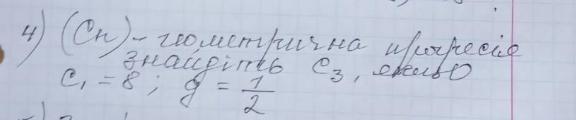 4) (Cn) - геометрична прогресія
знайдіть C₃, якщо
C₁ = 8; g = 1/2